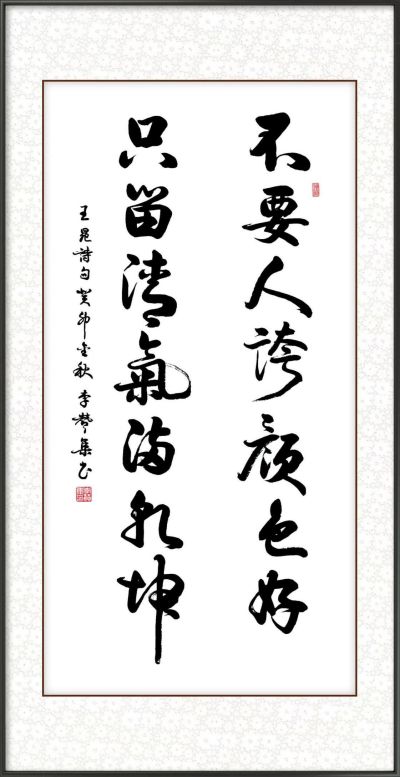 不要人誇顏色好
只留清氣滿乾坤
王冕詩句癸卯金秋李集书